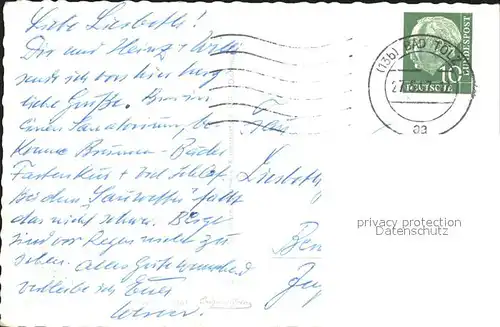 Liebe Liesbeth!
Dir und Heinz + Willi
sende ich von hier herz
liche Grüße. Bin in
einem Sanatorium, be
komme Brunnen - Bäder
Fastenkur + viel Schlaf.
Bei dem "Sauwetter" fällt
das nicht schwer. Berge
sind vor Regen nicht zu
sehen. Alles Gute wünschend
verbleibe ich Euer
Frau
Liesbeth
(13b) BAD TÖLZ
aa
10
BUNDESPOST
DEUTSCHE
privacy protection
Datenschutz